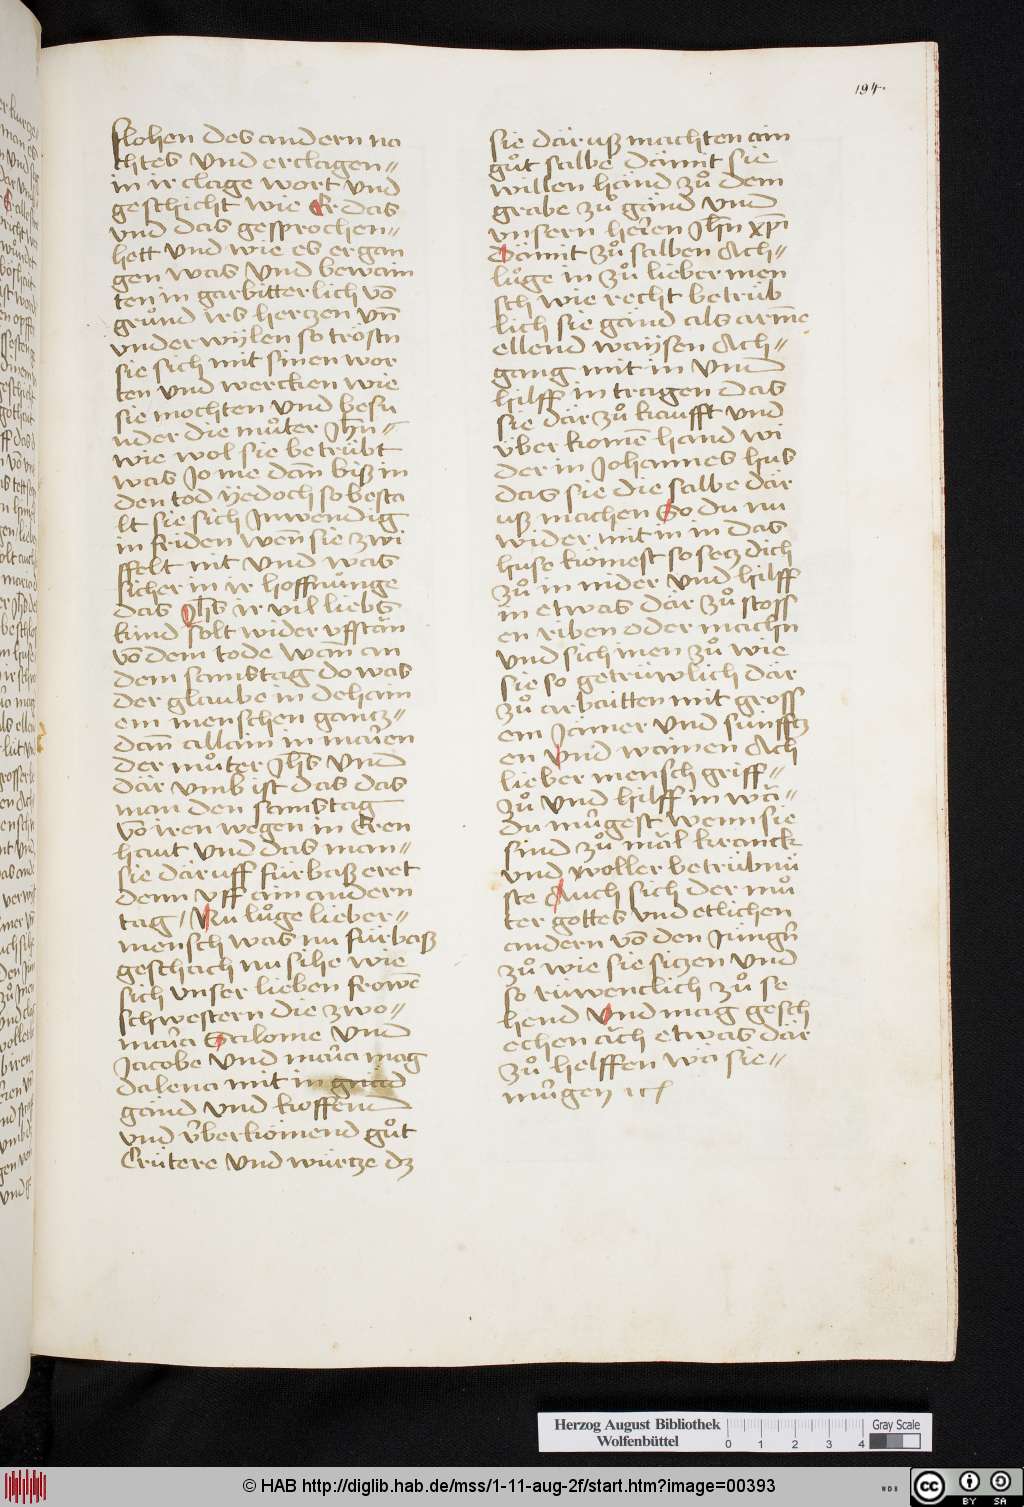 194.
flohen des andern na
chtes vnd erclagen=
in ir clage wort vnd
geschicht wie Er das
vnd das gesprochen=
hett vnd wie es ergan
gen was vnd bewain
ten in gar bitterlich vō
grůnd irs herczen vn̄
vnder wylen so tröstn
sie sich mit sinen wor
ten vnd wercken wie
sie mochten vnd besu
nder die můter Jhn̄=
wie wol sie betrübt
was Jo me dan̄ biß in
den tod yedoch so besta
lt sie sich Inwendig
in friden wen̄ sie zwi
ffelt nit vnd was
sicher in ir hoffnunge
das Jhs̄ ir vil liebs
kind solt wider vfftän
vō dem tode wan̄ an
dem samstag do was
der glaube in dehain
em menschen gancz=
dan̄ allain in maŕien
der můter Jhs̄ vnd
där vmb ist das das
man den samstag
vō iren wegen in Eren
haut vnd das man=
sie däruff fürbaß eret
denn vff ain andern
tag / Nu lůge lieber=
mensch was nu fürbaß
geschach nu sihe wie
sich vnser lieben frowē
schwestern die zwo=
maŕia Salome vnd
Jacobe vnd maŕia mag
dalena mit in gnad
gänd vnd koffend
vnd v̈berkömend gůt
Crütere vnd würcze dz
sie däruß machten ain
gůt salbe dämit sie
willen händ zů dem
grabe zů gänd vnd
vnsern heŕren Jhn̄ xp̄i
dämit zů salben Ach=
lůge in zů lieber men
sch wie recht betrüb
lich sie gänd als arme
ellend waysen Ach=
gang mit in vnd
hilff in tragen das
sie där zů kaufft vnd
v̈ber komē hand wi
der in Johannes hus
das sie die salbe där
uß machen So du nu
wider mit in in das
huse kömest so secz dich
zů in nider vnd hilff
in etwas där zů stoss
en riben oder machn
vnd sich inen zů wie
sie so getrüwlich där
zů arbaitten mit gross
em Jamer vnd sünfftz
en vnd wainen Ach
lieber mensch griff=
zů vnd hilff in wä=
du mügest wenn sie
sind zů mäl kranck
vnd woller betrübnü
ste Auch sich der mů
ter gottes vnd etlichen
andern vō den Jüngn̄
zů wie sie siczen vnd
so rüwenclich zů se
hend vnd mag gesch
echen äch etwas där
zů helffen wä sie=
mügen ic
Herzog August Bibliothek
Wolfenbüttel
0 1 2 3 4
Gray Scale
© HAB http://diglib.hab.de/mss/1-11-aug-2f/start.htm?image=00393
WDB
cc BY SA